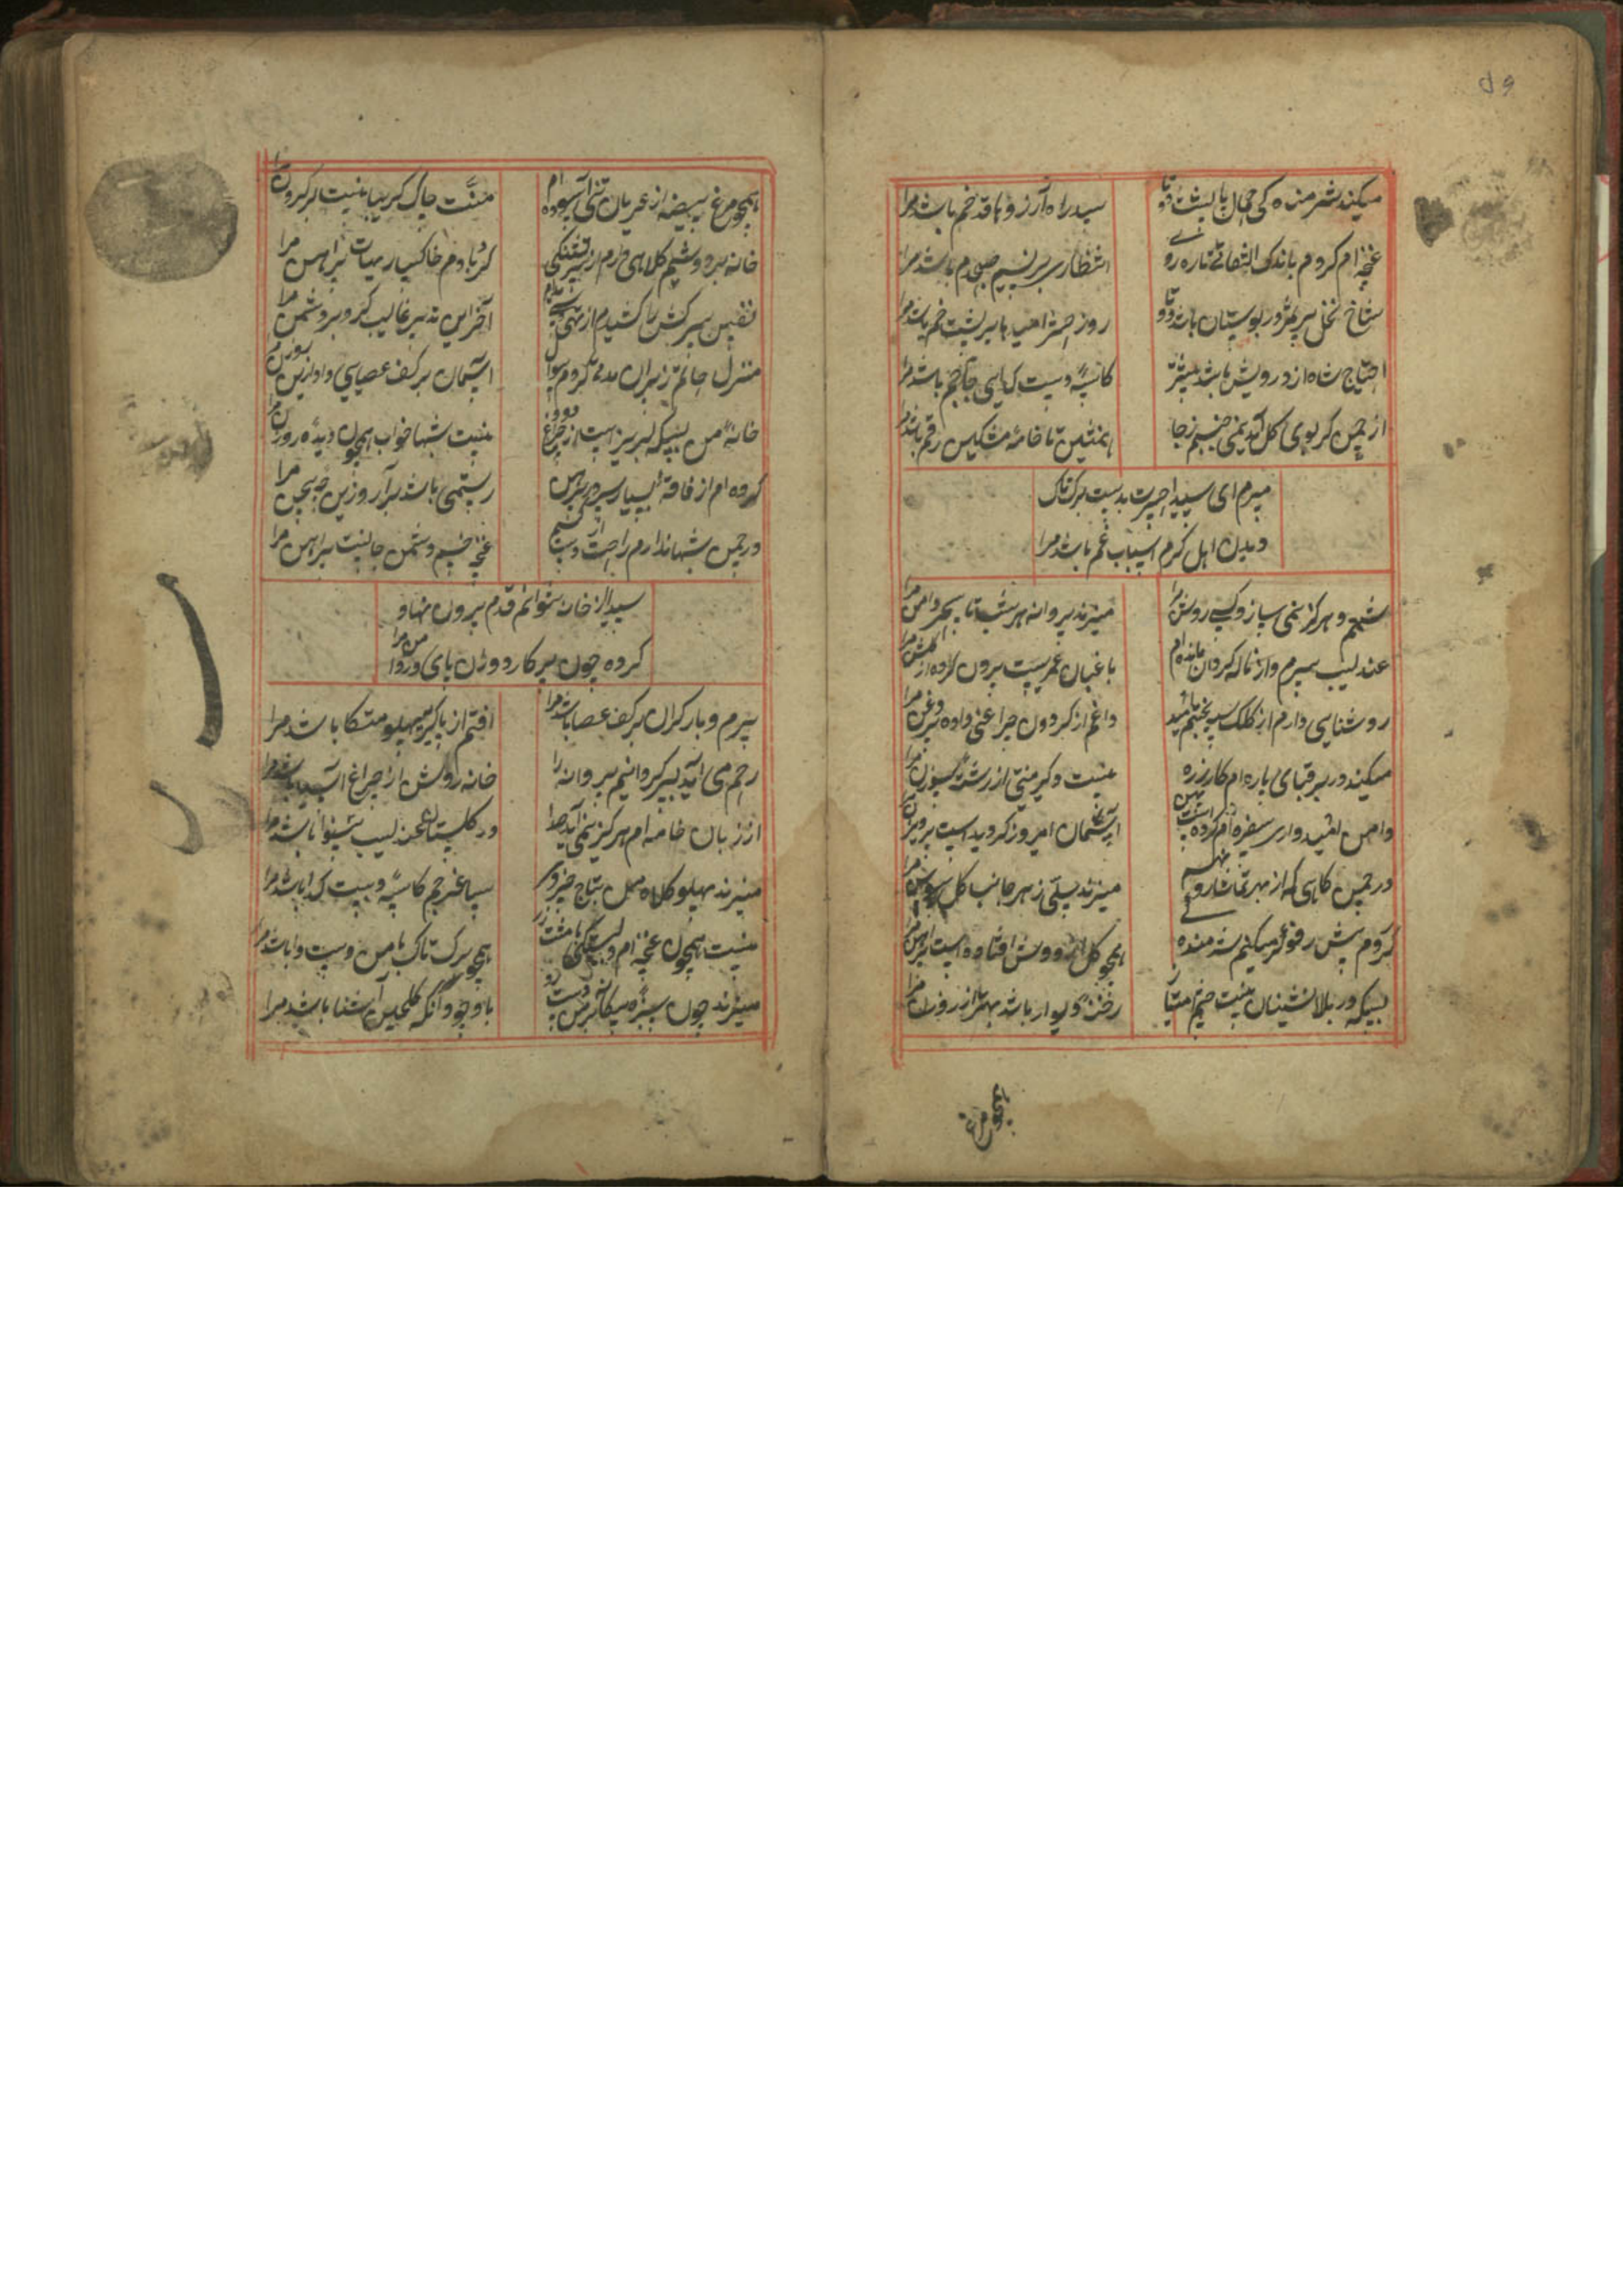 میکند شرمنده کی جهان با پشت دوتا
سد راه آرزوها قد خم باشد مرا
غنچه ام کردم باندک التفاتی تازه روی
انتظار بر نسیم صبحدم باشد مرا
شاخ نخل پر ثمر در بوستان باشد دوتا
روز حشر امید با پشت خم باشد مرا
احتیاج شاه از درویش باشد بیشتر
کاسه دست گدایی جام جم باشد مرا
از چمن گر بوی گل آید نمی خیزم ز جا
همنشین تا خامه مشکین رقم باشد مرا
میرم ای سیدا حسرت بدست برگ تاک
دیدن اهل کرم اسباب غم باشد مرا
شمعم و هرگز نمی سازد کسی روشن مرا
میزند پروانه هر شب تا سحر دامن مرا
عندلیب پیرم و از ناله کردن مانده ام
باغبان عمریست بیرون کرده از گلشن مرا
روشنایی دارم از کلک سیه بختم امید
داغم از گردون چراغی داده بی روغن مرا
میکند در بر قبای پاره ام کار زره
نیست دیگر منتی از رشته سوزن مرا
دامن امید واری سفره ام کرده است پهن
آسمان امروز گردید است پرویزن مرا
در چمن گاهی که از بهر تماشا رو نهم
میزند سیلی ز هر جانب گل سوسن مرا
کردم پیش رفوگر میکنم شرمنده
همچو گل از دوش افتاده است پیراهن مرا
بسکه در بالانشینان نیست چشم امتیاز
رخنه دیوار باشد بهتر از روزن مرا
همچو مرغ بیضه از عریان تنی آسوده ام
منت چاک گریبان نیست بر گردن مرا
خانه بر دوشم کلاهی دارم از
گردبادم خاکسارم پیراهن مرا
نفس سرکش را کشیدم از تهی
آخر این تدبیر غالب کرد بر دشمن مرا
منزل حاتم ز پیران کردم سوال
آسمان بر کف عصایی داد از مرا
خانه من بسکه لبریز است از دود چراغ
نیست شبها خواب همچون دیده روزن مرا
کرده ام از فاقه بسیار سر در پیرهن
رستمی باشد برآرد زین چه بیژن مرا
در چمن شبها ندارم راحت از دست نسیم
غنچه خسپم دشمن جانست پیراهن مرا
سیدا از خانه نتوانم قدم بیرون نهاد
کرده چون پرکار دوران پای در دامن مرا
پیرم و بار گران بر کف عصا باشد مرا
افتم از پا گر پهلو متکا باشد مرا
رحم می آید بسر گردانیم پروانه را
خانه روشن از چراغ آسیا باشد مرا
از زبان خامه ام هرگز نمی آید صدا
در گلستان عندلیب بینوا باشد مرا
میزند پهلو کلاه من بتاج خسروی
ساغر جم کاسه دست گدا باشد مرا
نیست همچون غنچه ام دلبستگی با مشت زر
همچو برگ تاک با من دست وا باشد مرا
میزند چون سبزه بیگانه بر من دست رد
با وجود آنکه گلچین آشنا باشد مرا